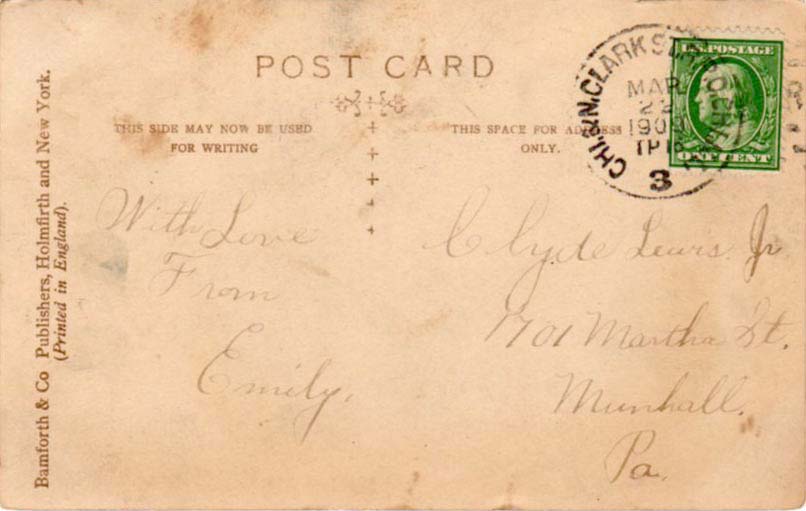 POST CARD
THIS SIDE MAY NOW BE USED
FOR WRITING
THIS SPACE FOR ADDRESS
ONLY.
U.S. POSTAGE
ONE CENT
CHI. & N. CLARK ST.
MAR
22
1909
3
Bamforth & Co Publishers, Holmfirth and New York.
(Printed in England).
With Love
From
Emily.
Clyde Lewis Jr
1701 Martha St.
Munhall.
Pa.